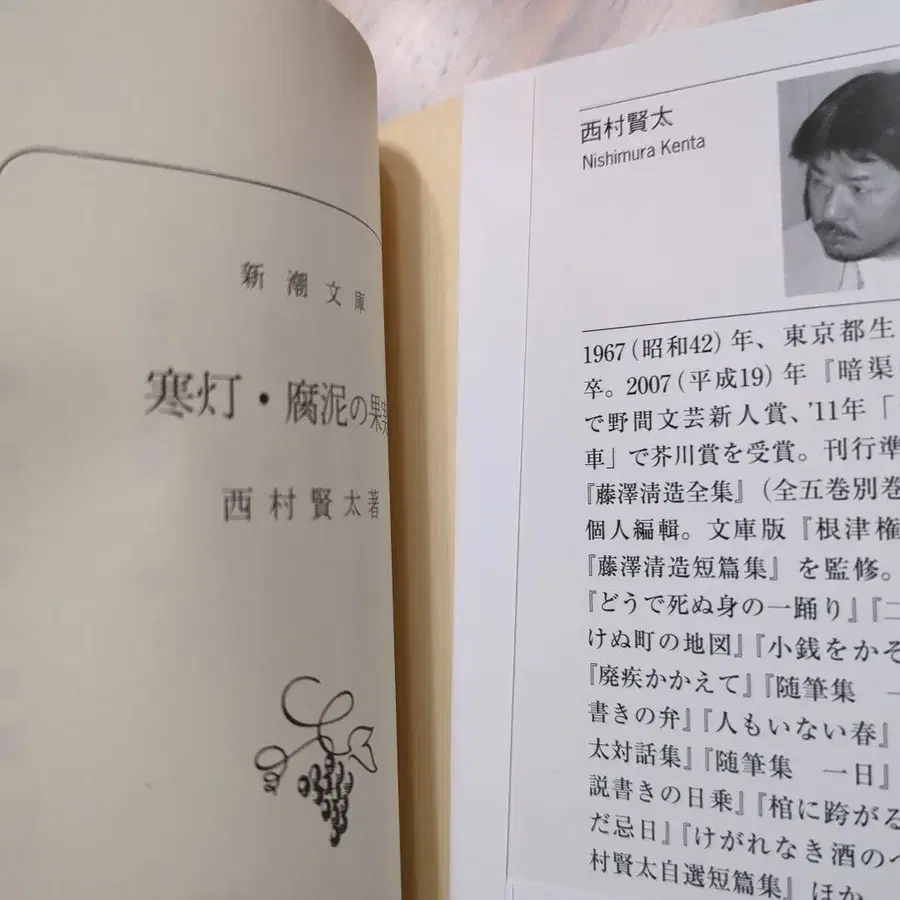 新潮文庫
寒灯・腐泥の果実
西村賢太著
西村賢太
Nishimura Kenta
1967(昭和42)年、東京都生
卒。2007(平成19)年『暗渠
で野間文芸新人賞、'11年「
車」で芥川賞を受賞。刊行準
『藤澤清造全集』(全五巻別巻
個人編輯。文庫版『根津権
『藤澤清造短篇集』を監修。
『どうで死ぬ身の一踊り』『二
けぬ町の地図』『小銭をかぞ
『廃疾かかえて』『随筆集 一
書きの弁』『人もいない春』
太対話集』『随筆集 一日』
説書きの日乗』『棺に跨がる
だ忌日』『けがれなき酒のへ
村賢太自選短篇集』ほか